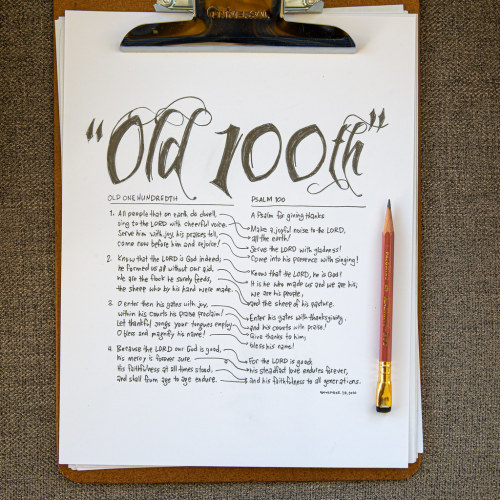 "Old 100th"
OLD ONE HUNDREDTH
1. All people that on earth do dwell,
sing to the LORD with cheerful voice.
Serve him with joy, his praises tell,
come now before him and rejoice!
2. Know that the LORD is God indeed;
he formed us all without our aid.
We are the flock he surely feeds,
the sheep who by his hand were made.
3. O enter then his gates with joy,
within his courts his praise proclaim!
Let thankful songs your tongues employ.
O bless and magnify his name!
4. Because the LORD our God is good,
his mercy is forever sure.
His faithfulness at all times stood,
and shall from age to age endure.
PSALM 100
A Psalm for giving thanks
Make a joyful noise to the LORD,
all the earth!
Serve the LORD with gladness!
Come into his presence with singing!
Know that the LORD, he is God!
It is he who made us and we are his;
we are his people,
and the sheep of his pasture.
Enter his gates with thanksgiving,
and his courts with praise!
Give thanks to him;
bless his name!
For the LORD is good;
his steadfast love endures forever,
and his faithfulness to all generations.